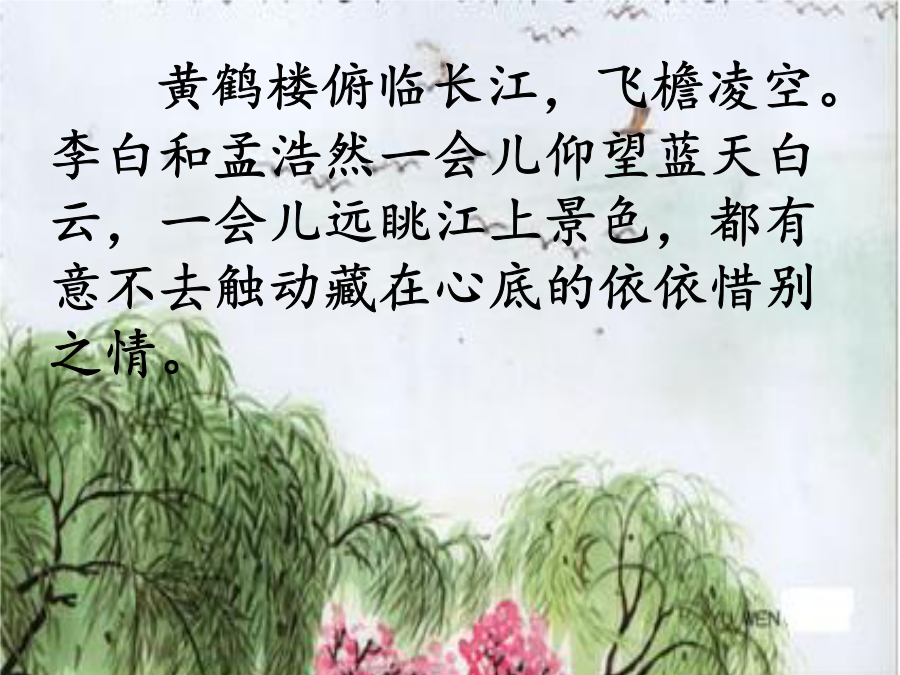 黄鹤楼俯临长江，飞檐凌空。
李白和孟浩然一会儿仰望蓝天白
云，一会儿远眺江上景色，都有
意不去触动藏在心底的依依惜别
之情。
YU WEN